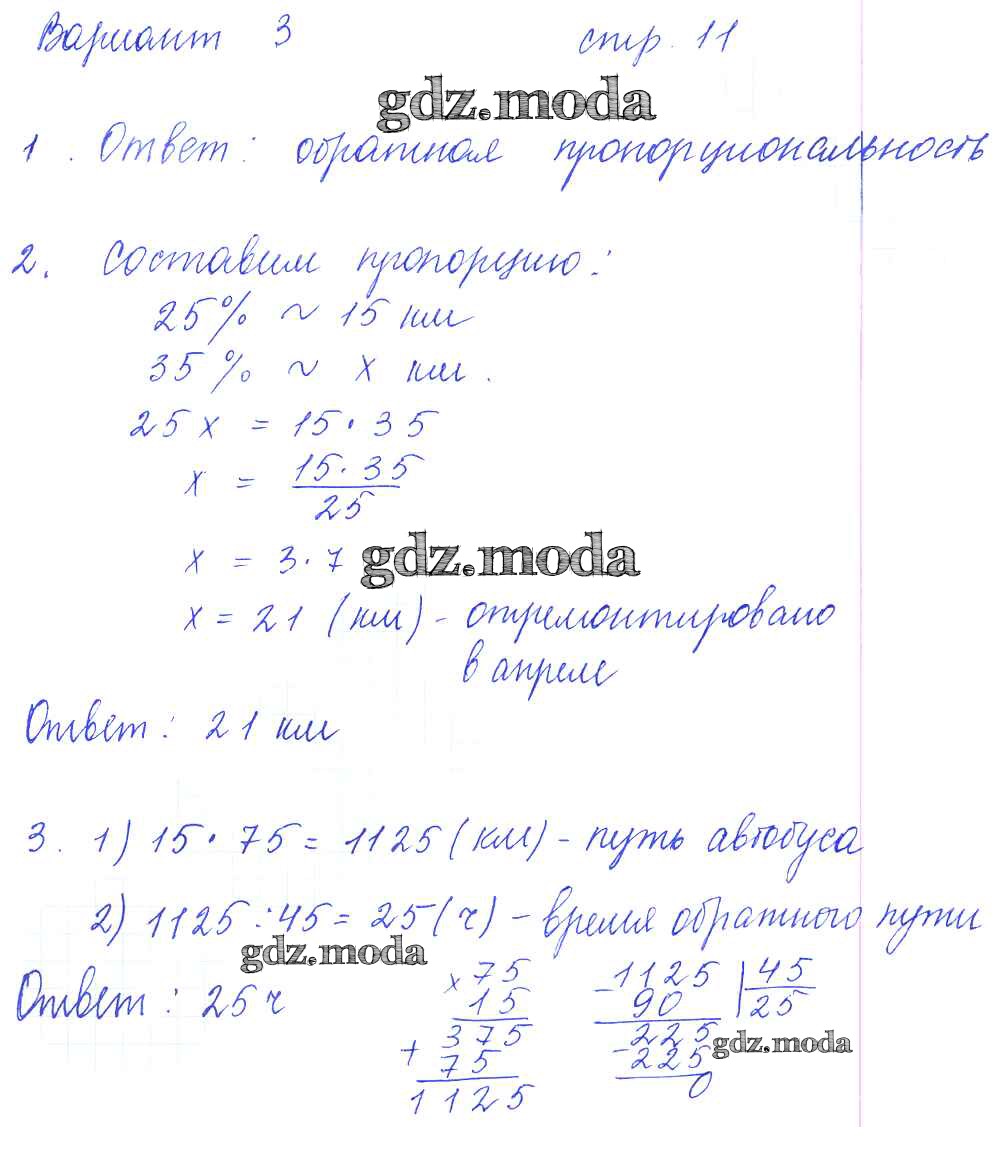 Вариант 3 стр. 11
gdz.moda
1. Ответ: обратная пропорциональность
2. Составим пропорцию:
25% ~ 15 км
35% ~ x км.
25x = 15·35
x = 15·35
25
x = 3·7 gdz.moda
x = 21 (км) - отремонтировано
в апреле
Ответ: 21 км
3. 1) 15·75 = 1125 (км) - путь автобуса
2) 1125:45 = 25 (ч) - время обратного пути
gdz.moda
Ответ: 25 ч
×75
15
375
+ 75
1125
-1125 45
90 25
225
-225
0
gdz.moda